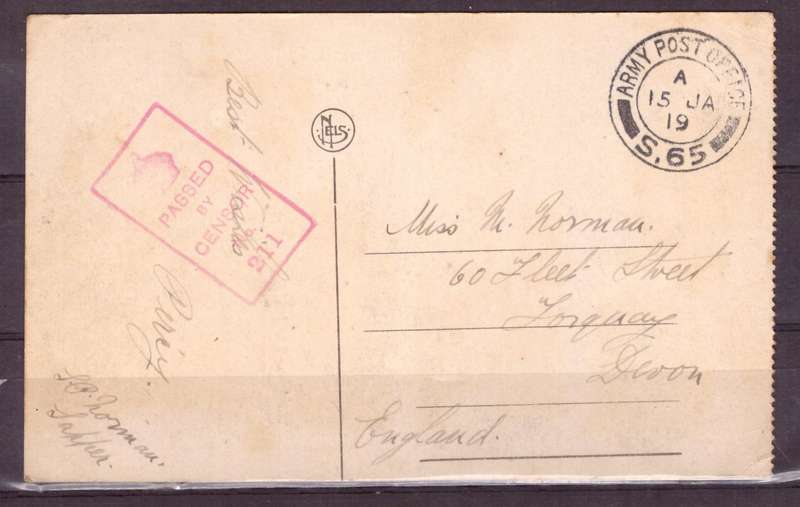 Best Wishes
Percy
S.P. Norman.
Sapper.
PASSED
BY
CENSOR
211
NELS
ARMY POST OFFICE
A
15 JA
19
S.65
Miss M. Norman.
60 Fleet Street
Torquay
Devon
England.